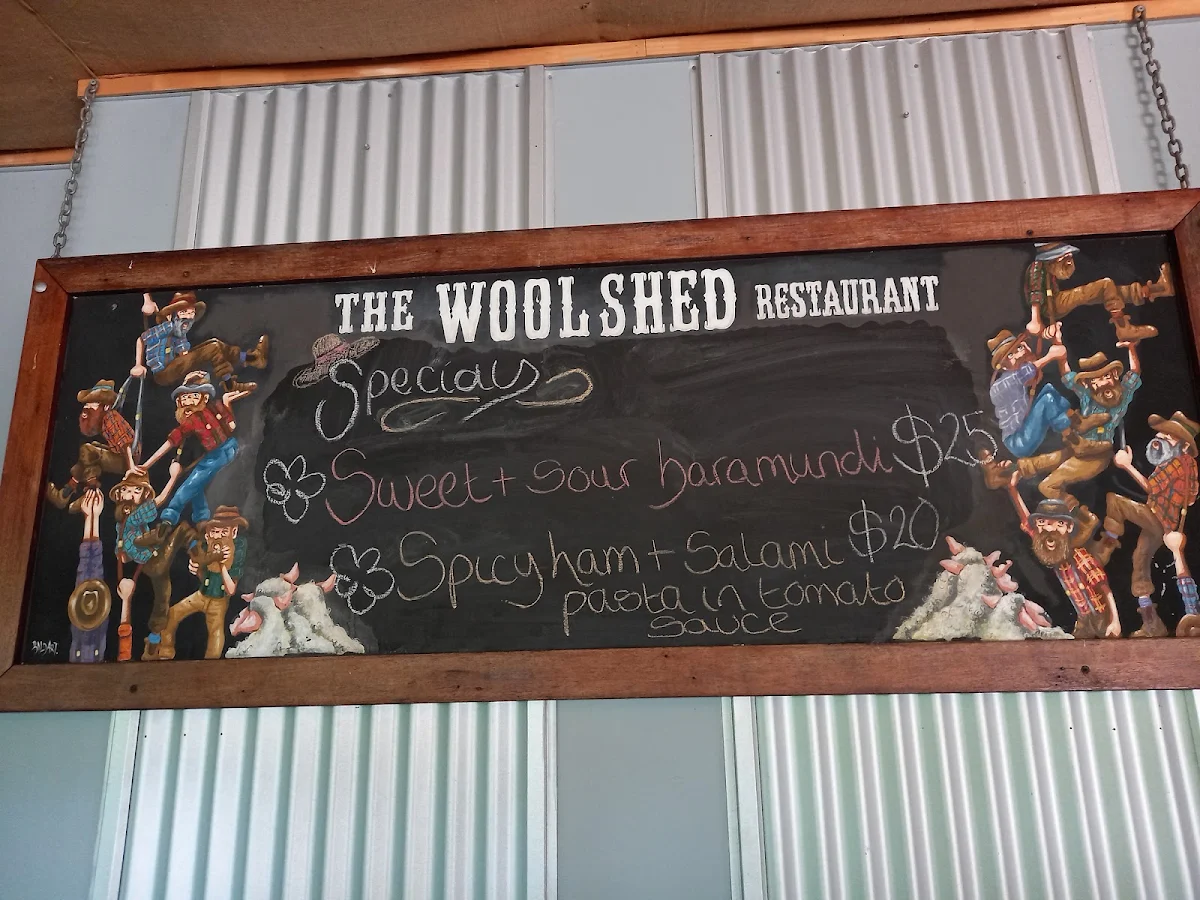 THE WOOLSHED RESTAURANT
Specials
Sweet + sour baramundi $25
Spicy ham + Salami $20
pasta in tomato
sauce